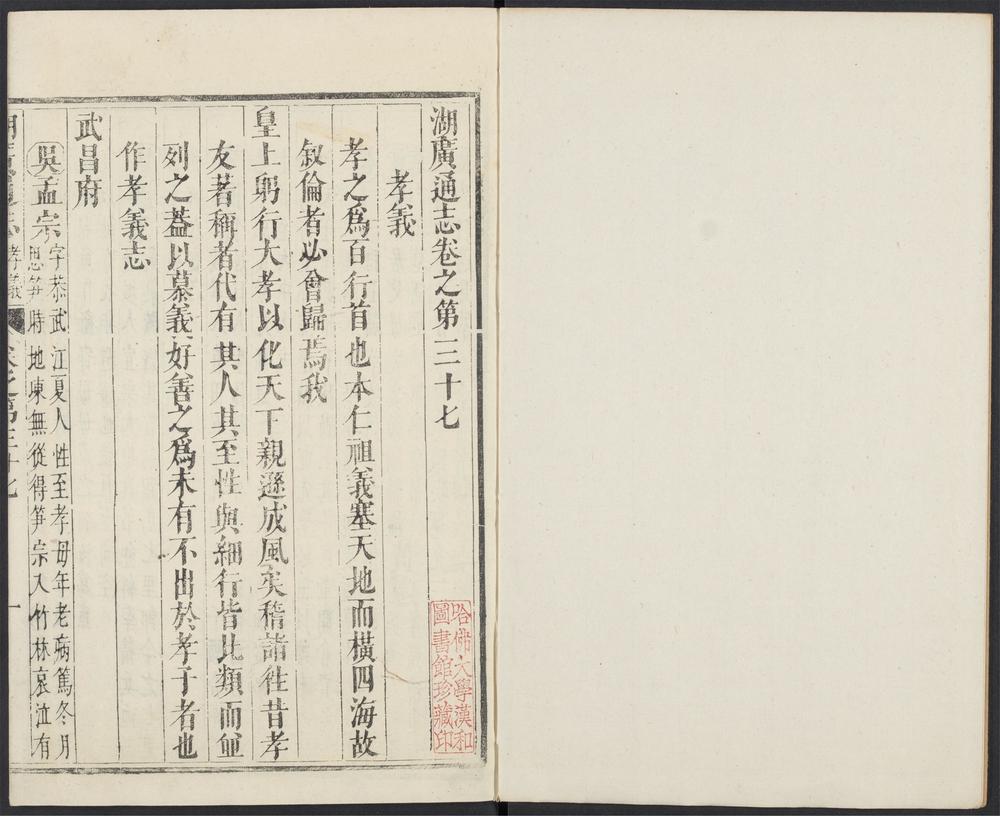 湖廣通志卷之第三十七
孝義
孝之爲百行首也本仁祖義塞天地而橫四海故
叙倫者必會歸焉我
皇上躬行大孝以化天下親遜成風矣稽諸徃昔孝
友著稱者代有其人其至性與細行皆比類而並
列之葢以慕義好善之爲未有不出於孝子者也
作孝義志
武昌府
吳孟宗
字恭武江夏人性至孝母年老病篤冬月
思笋時地凍無從得笋宗入竹林哀泣有
孝義
卷之第三十七
一
哈佛大學漢和
圖書館珍藏印